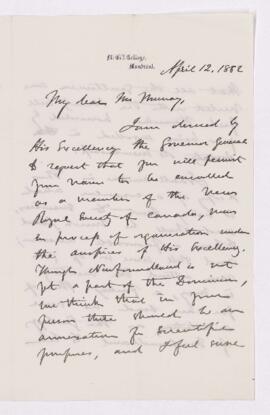 McGill College,
Montreal.
April 12, 1882
My dear Mr Murray,
I am desired by
His Excellency the Governor General
to request that you will permit
your name to be enrolled
as a member of the new
Royal Society of Canada, now
in process of organisation under
the auspices of His Excellency.
Though Newfoundland is not
yet a part of the Dominion,
we think that in your
person there should be an
annexation for scientific
purposes, and I feel sure